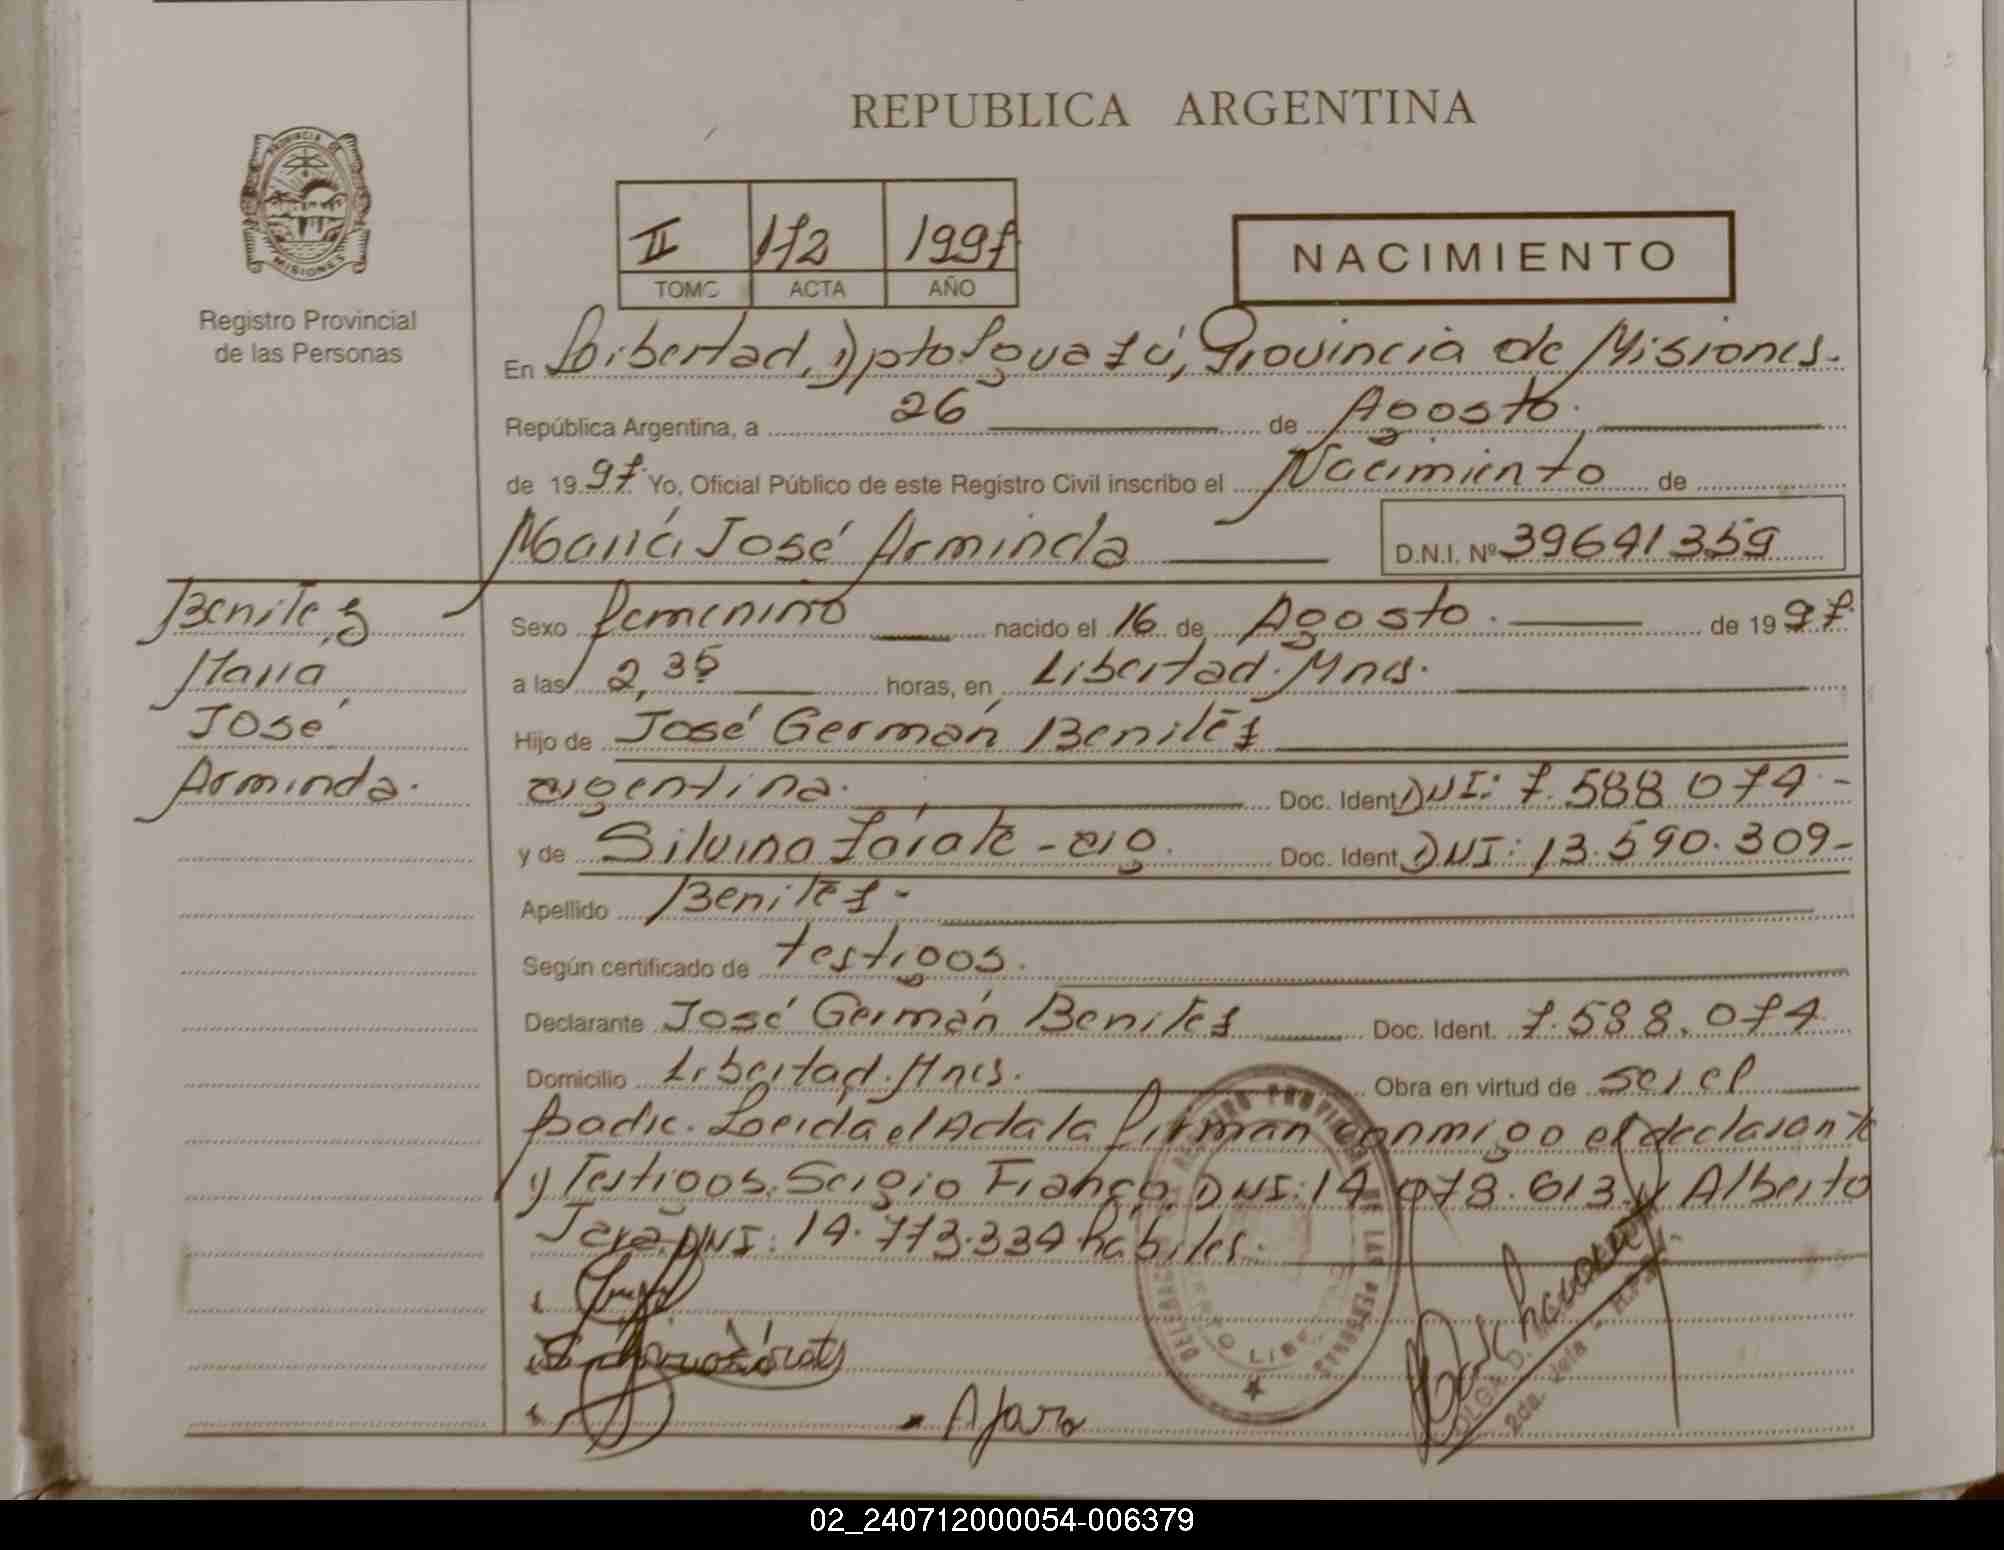 REPUBLICA ARGENTINA
PROVINCIA DE
MISIONES
Registro Provincial
de las Personas
II 172 1997
TOMO ACTA AÑO
NACIMIENTO
En Libertad, Dpto Iguazú, Provincia de Misiones.
República Argentina, a 26 de Agosto.
de 1997. Yo, Oficial Público de este Registro Civil inscribo el Nacimiento de
María José Arminda D.N.I. Nº 39641359
Benitez
María
José
Arminda.
Sexo femenino nacido el 16 de Agosto. de 1997.
a las 2,35 horas, en Libertad. Mnes.
Hijo de José Germán Benitez
argentina. Doc. Ident. DNI: 7.588 074.-
y de Silvina Zárate - arg. Doc. Ident. DNI: 13.590.309-
Apellido Benitez-
Según certificado de testigos.
Declarante José Germán Benitez Doc. Ident. 7.588.074.
Domicilio Libertad. Mnes. Obra en virtud de ser el
padre. Leida el Acta la firman conmigo el declarante
y Testigos. Sergio Franco, DNI: 14.078.613 y Alberto
Jara DNI: 14.773.334 hábiles.
A Jara
OLGA D.
2da. Jefa - R.P.P.
REGISTRO PROVINCIAL DE LAS PERSONAS
★
02_240712000054-006379